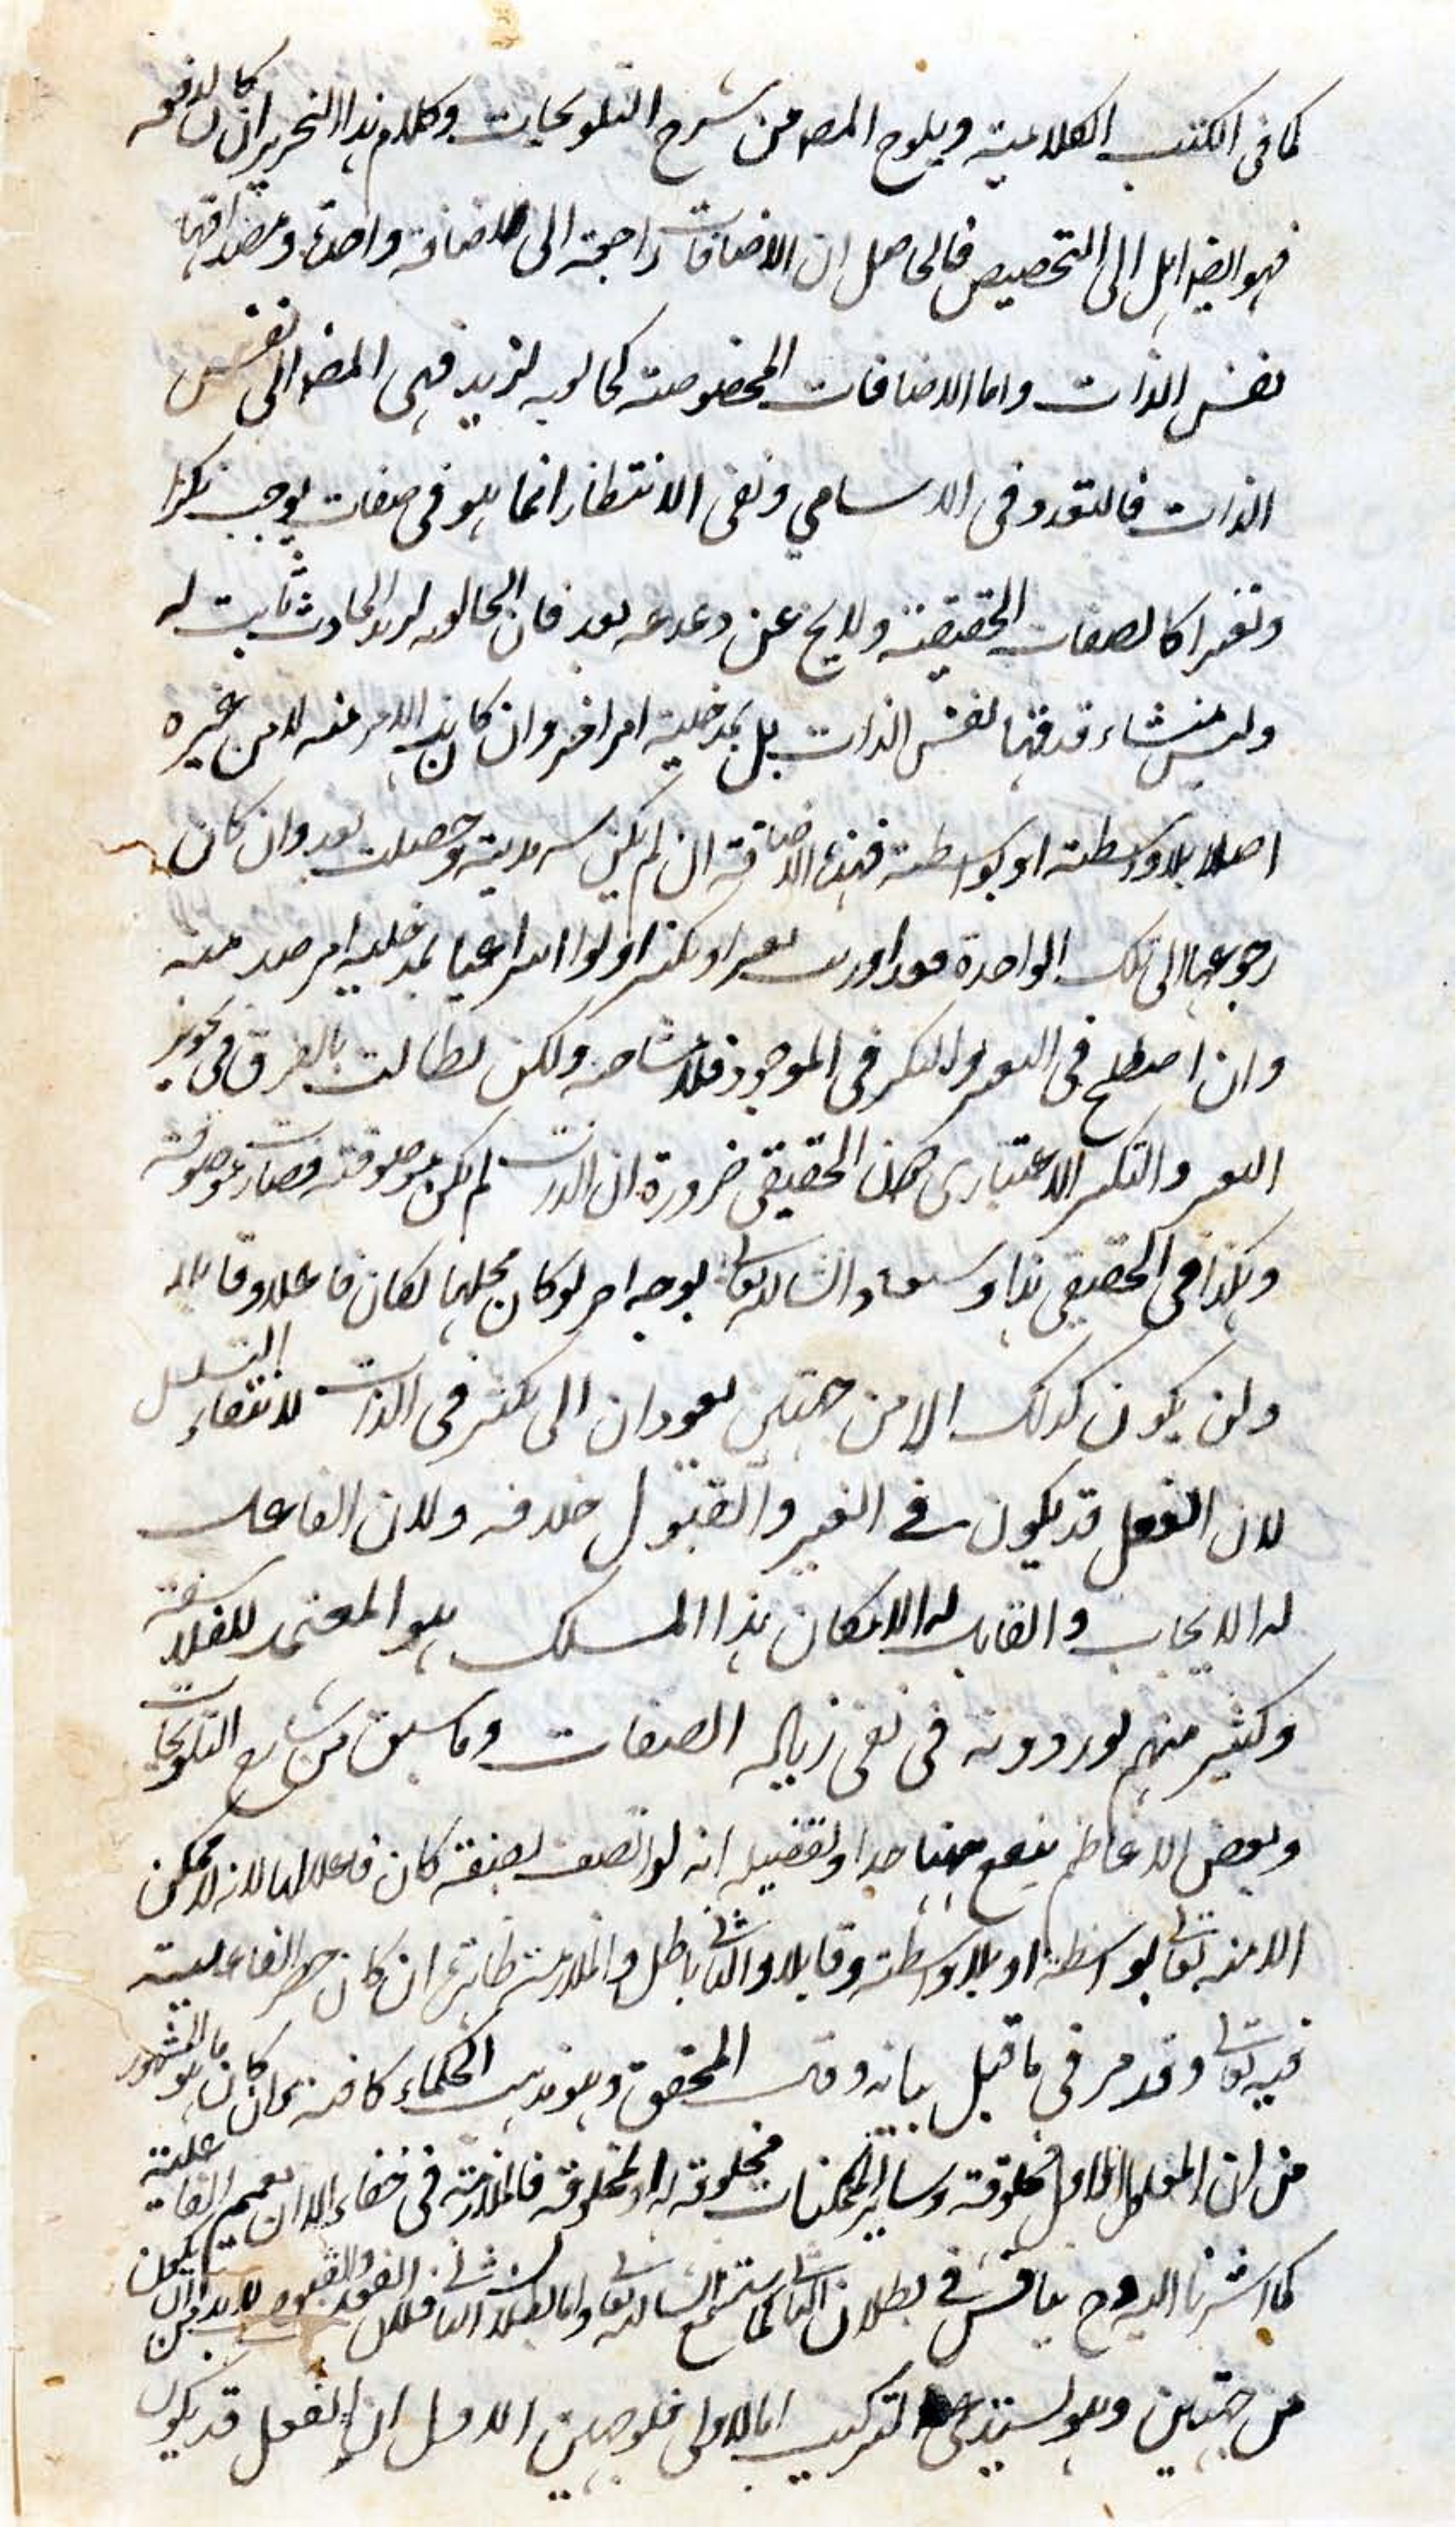 كما في الكتب الكلامية ويلوح المص من شرح التلويحات وكلام هذا النحرير ان كان لا فقه
فهو ايض ايل الى التخصيص فالحاصل ان الاضافات راجعة الى اضافة واحدة ومصداقها
نفس الذات واما الاضافات المخصوصة كخالقية لزيد فهي المض الى نفس
الذات فالتعدد في الاسامي ونفى الانتظار انما هو في صفات يوجب تكثرا
وتغيرا كالصفات الحقيقية ولا يخ عن دغدغه بعد فان الخالقيه لزيد الحادث ثابت له
وليس منشاء صدقها نفس الذات بل بمدخلية امر اخر وان كان هذا الامر عنه لا من غيره
اصلا بلا واسطة او بواسطة فهذه الاضافة ان لم يكن سرمدية وحصلت بعد وان كان
رجوعها الى تلك الواحدة تغيرا وتكثرا ولو انتزاعيا بمدخلية امر صدر منه
وان اصطلح في التغير والتكثر في الموجود فلا مشاحة ولكن نطالب بالفرق في تجويز
التغير والتكثر الاعتباري دون الحقيقي ضرورة ان الذات لم يكن موصوفة فصارت موصوفة
وهكذا في الحقيقي هذا وسيعاد انشاء الله تعالى بوجه اخر لو كان محلها لكان فاعلا وقابلا
ولن يكون كذلك الا من جهتين يعودان الى تكثر في الذات لانتفاء التسلسل
لان الفعل قد يكون في الغير والقبول خلافه ولان الفاعل
له الايجاب والقابل له الامكان هذا المسلك هو المعتمد للفلاسفة
وكثير منهم يوردونه في نفى زيادة الصفات وما سبق من شارح التلويحات
وبعض الاعاظم ينفع ههنا جدا وتفصيله انه لو اتصف بصفة كان فاعلا لها لانه لا ممكن
الا منه تعالى بواسطة او بلا واسطة وقابلا والثاني باطل والملازمة ظاهرة ان كان حصر الفاعلية
فيه تعالى وقد مر في ما قبل بيانه وهو المحقق وهو مذهب الحكماء كافة وان كان ما هو المشهور
من ان المعلول الاول مخلوقه وساير الممكنات مخلوقه له او لمخلوقه فالملازمة في خفاء الا ان يعمم الفاعلية
كما اشرنا اليه وح يناقش في بطلان الثاني كما ستسمع انشاء الله تعالى واما بطلان الثاني فلان الفعل والقبول لا بد ان يكون
من جهتين وهو يستدعى التركيب اما الاولى فلوجهين الاول ان الفعل قد يكون